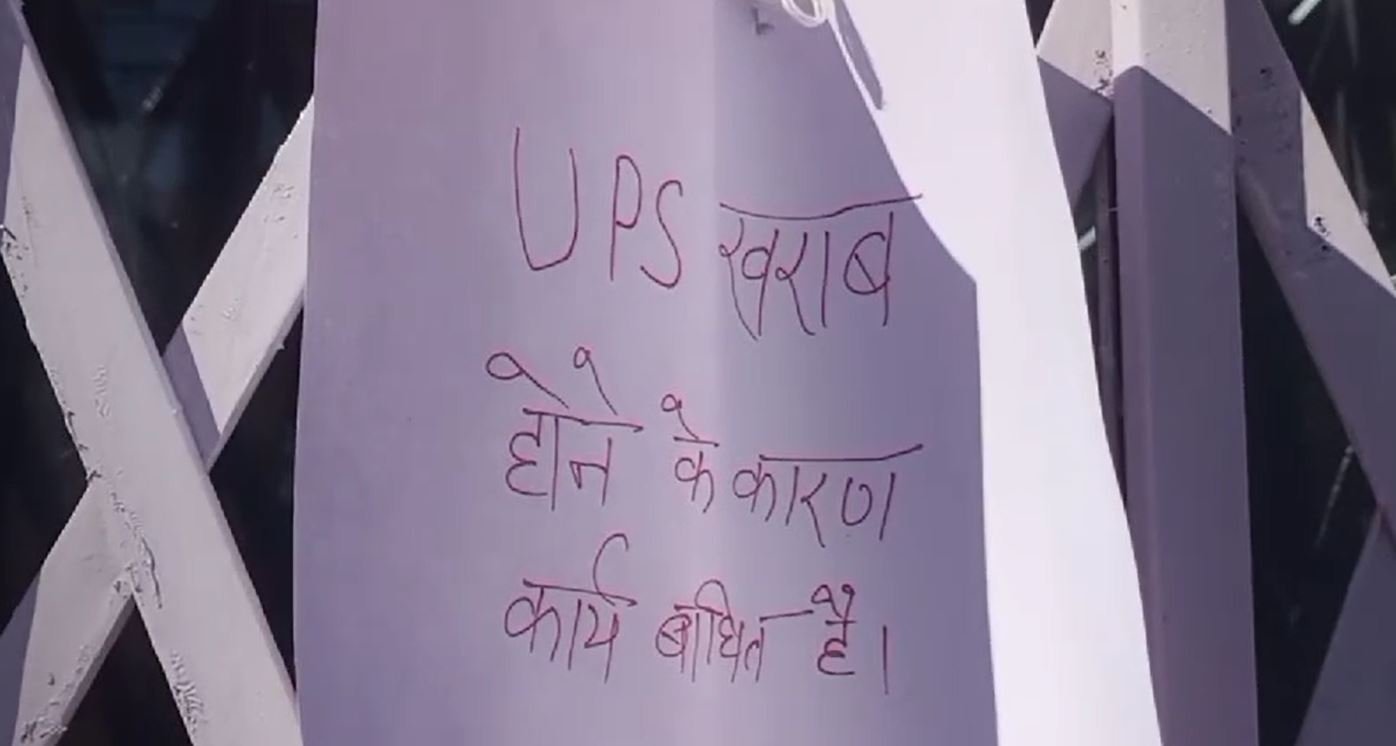 UPS खराब
होने के कारण
कार्य बाधित है।